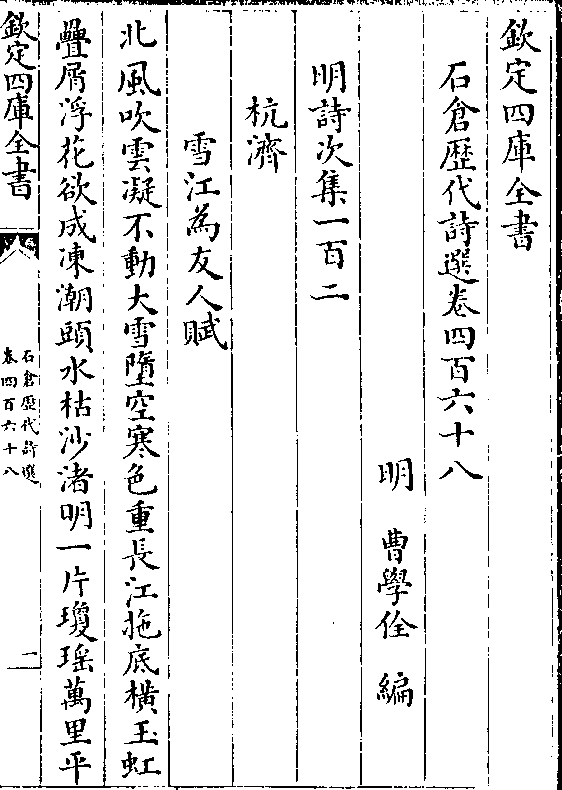 欽定四庫全書
石倉歴代詩選卷四百六十八
明 曹學佺 編
明詩次集一百二
杭濟
雪江為友人賦
北風吹雲凝不動大雪墮空寒色重長江拖底橫玉虹
疊屑浮花欲成凍潮頭水枯沙渚明一片瓊瑶萬里平
欽定四庫全書
石倉歴代詩選
卷四百六十八
一